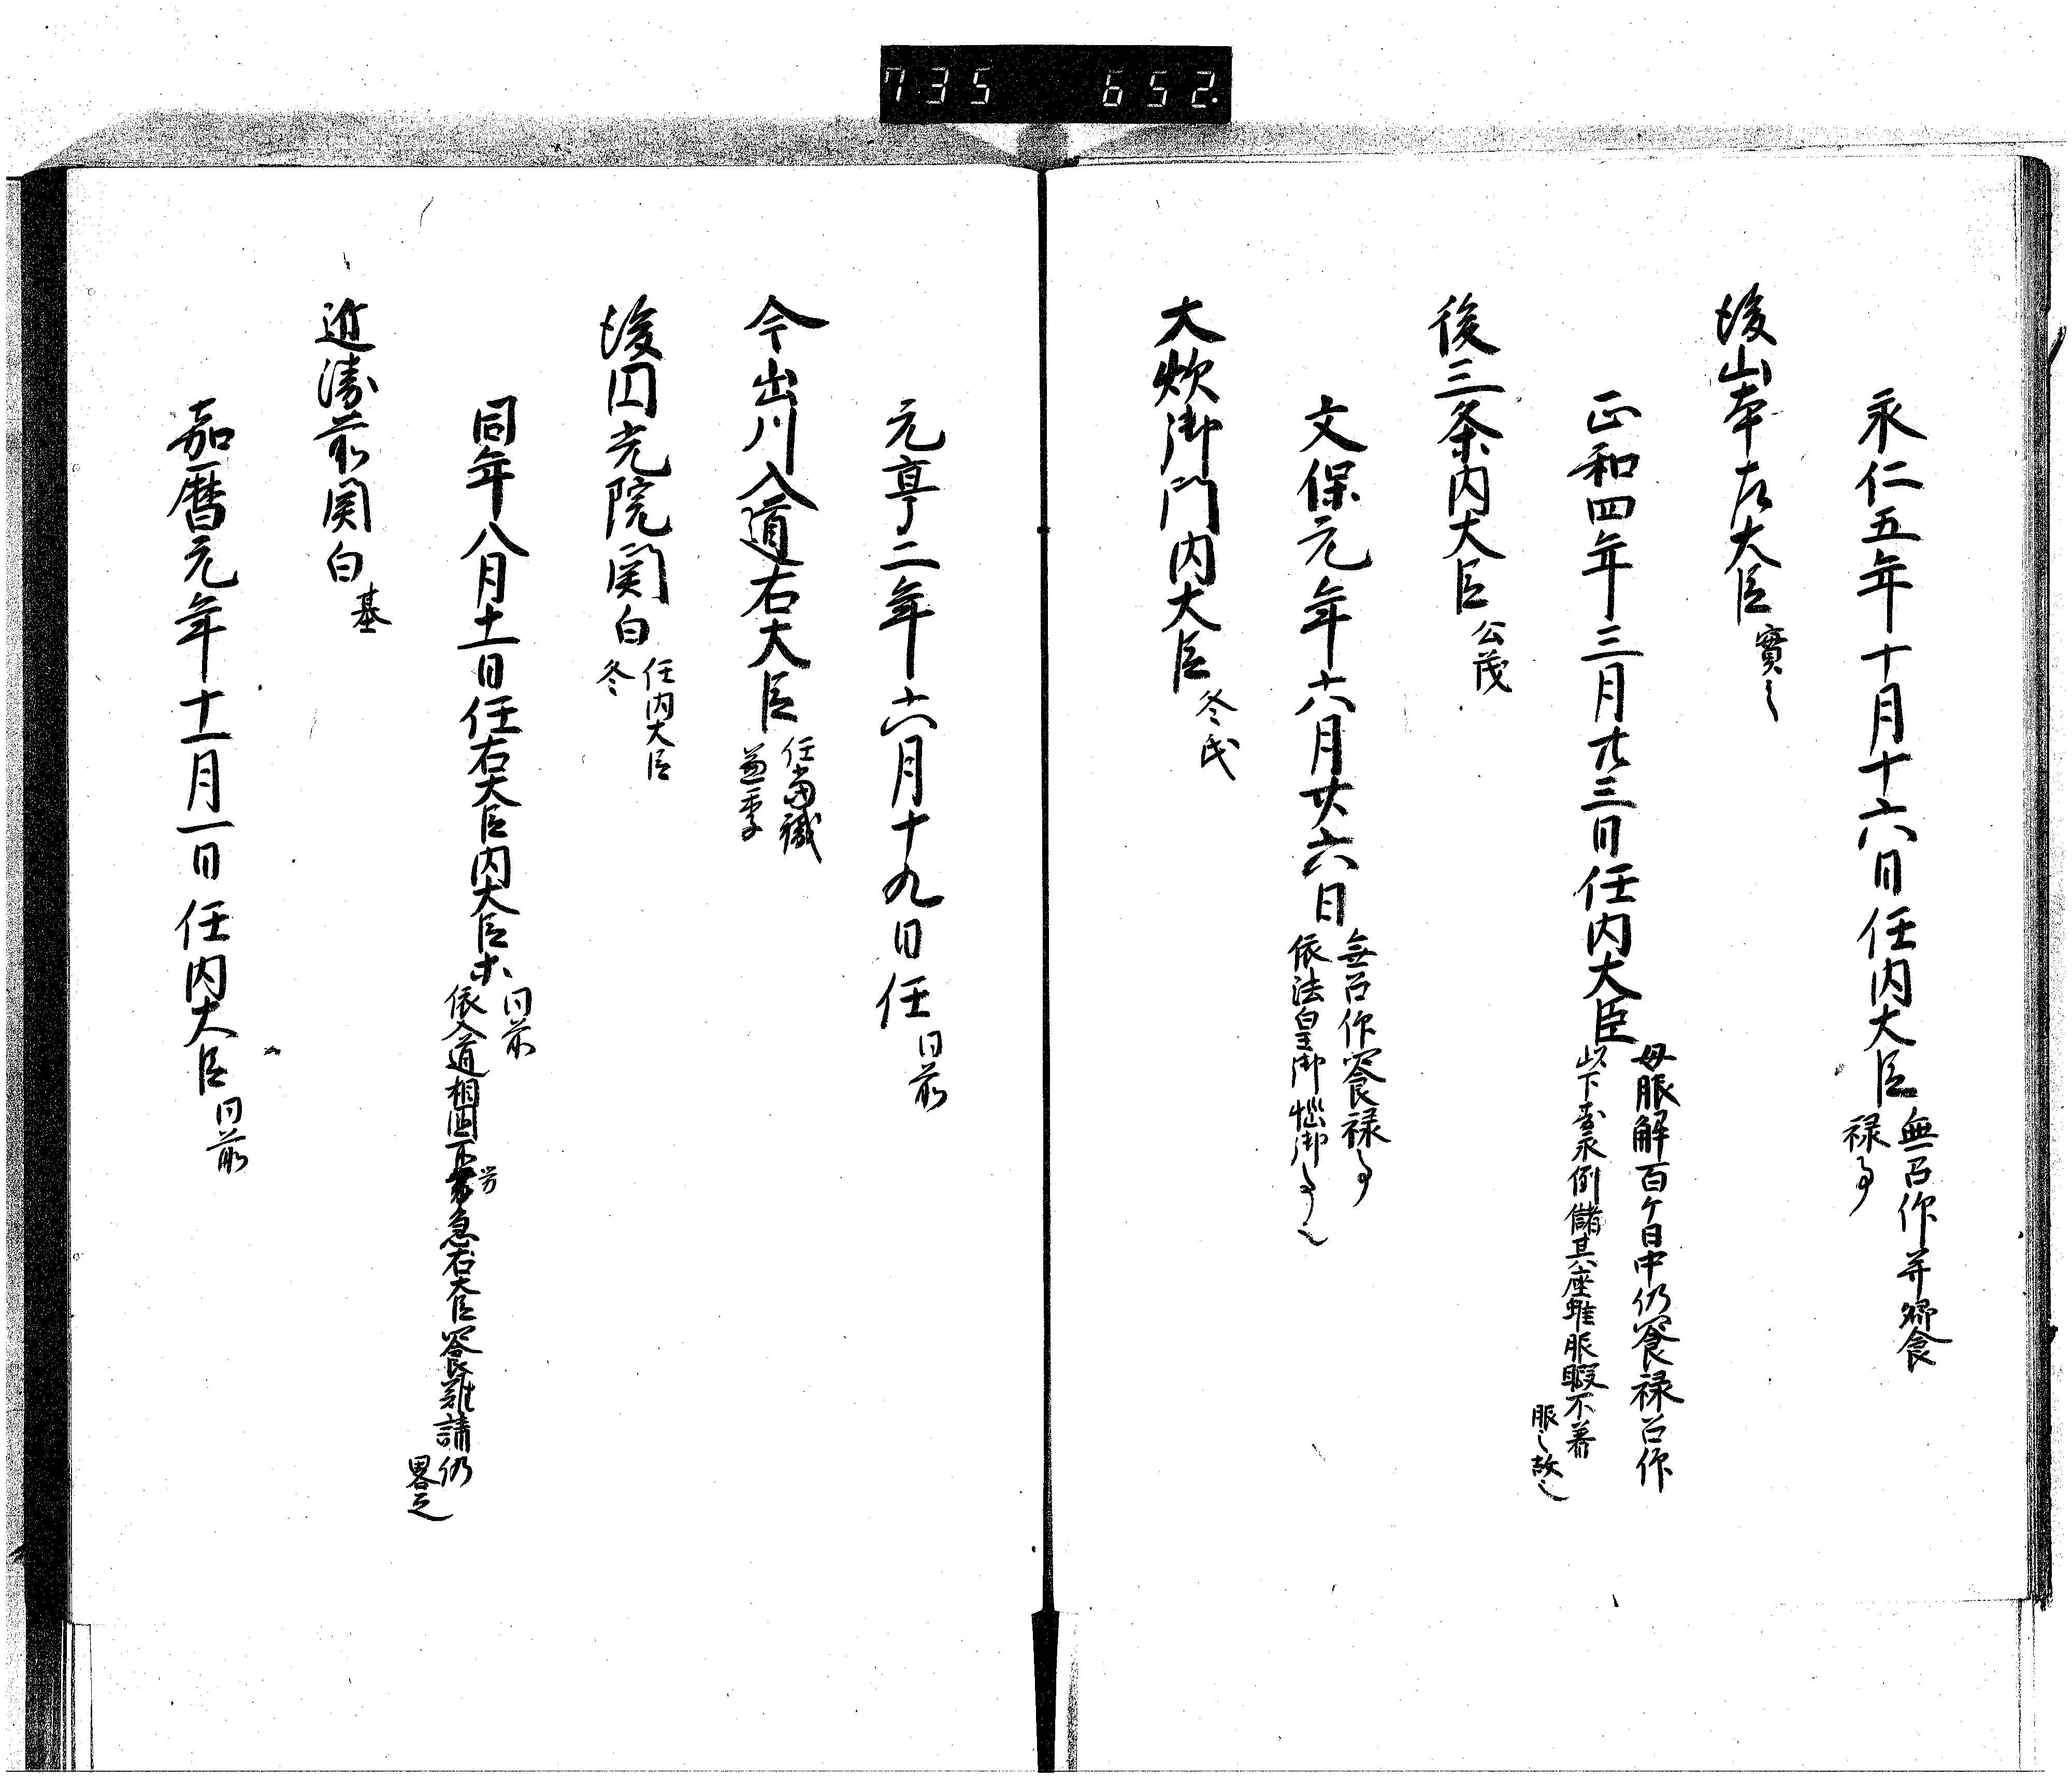 735 652
永仁五年十月十六日任内大臣
無召仰并饗
禄事
後山本左大臣 實ゝ
正和四年三月廿三日任内大臣
母服解百ケ日中仍饗禄召仰
以下壽永例儲其座雖服暇不着
服之故也
後三条内大臣 公茂
文保元年六月廿六日
無召仰饗禄事
依法皇御惱御事也
大炊御門内大臣 冬氏
元亨二年六月十九日任 同前
今出川入道右大臣
任當職
兼季
後円光院関白
任内大臣
冬
同年八月十一日任右大臣内大臣木
同前
依入道相国不豫危急右大臣饗難請仍
畧之
近衛前関白 基
嘉暦元年十一月一日任内大臣 同前